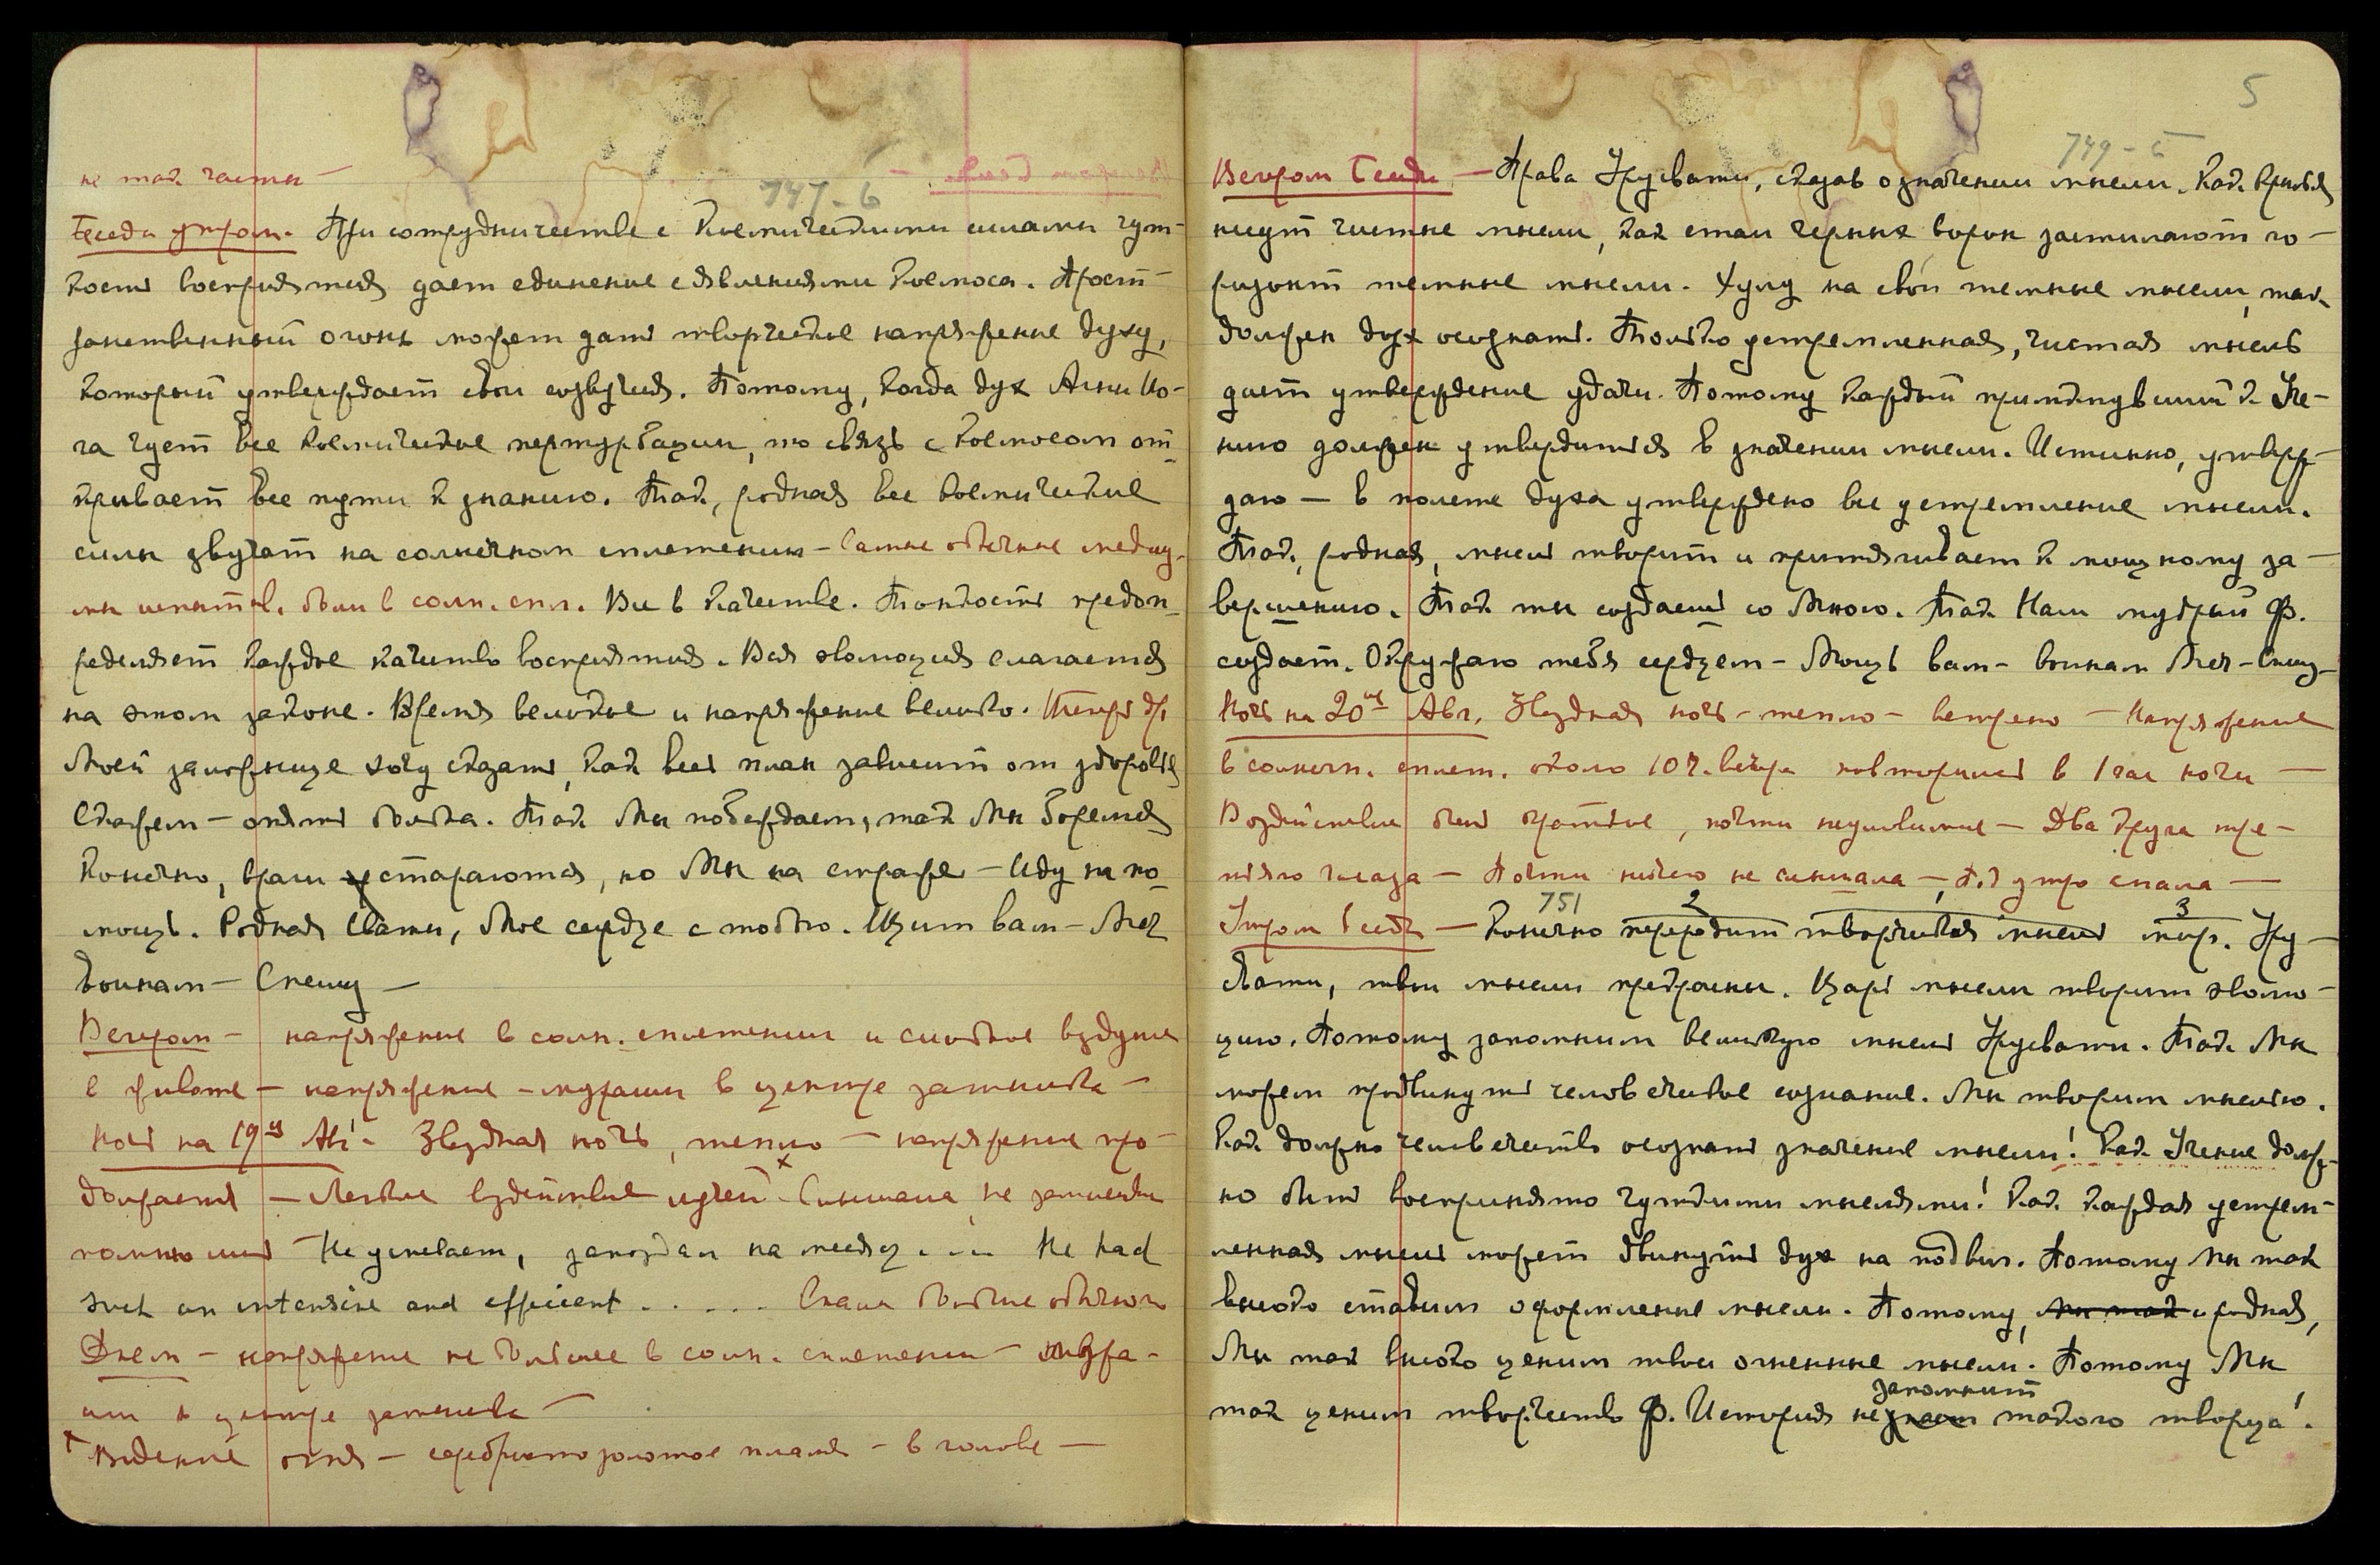 не так часты —
747-б
Беседа утром. При сотрудничестве с Космическими силами чут-
кость восприятия дает единение с явлениями Космоса. Прост-
ранственный огонь может дать творческое напряжение духу,
который утверждает свои созвучия. Потому, когда дух Агни Йо-
га чует все космические пертурбации, то связь с Космосом от-
крывает все пути к знанию. Так, родная все космические
силы звучат на солнечном сплетении – Самые обычные медиу-
мы были в солн. спл. Все в качестве. Тонкость предоп-
ределяет каждое качество восприятия. Вся эволюция слагается
на этом законе. Время великое и напряжение велико. Теперь др.
Моей заложнице хочу сказать, как весь план зависит от здоровья
Скажем – опять битва. Так Мы побеждаем, так Мы боремся
Конечно, враги стараются, но Мы на страже – Иду на по-
мощь. Родная Свати, Мое сердце с тобою. Щит вам – Меч
воинам – Спешу —
Вечером – напряжение в солн. сплетении и сильное вздутие
в животе – напряжение – мураши в центре затылка –
Ночь на 19ое Авг. Звездная ночь, тепло – напряжение про-
должается – Легкое воздействие лучей x Слышала, не записала
помню лишь Не успевает, запоздал на месяц ... He had
such an intensive and efficient ..... Спала больше обычного
Днем – напряжение не большое в солн. сплетении – мура-
ши в центре затылка –
x Видение огня – серебристо золотое пламя – в голове —
5
749-б
Вечером Беседа – Права Урусвати, сказав о значении мысли. Как крылья
несут чистые мысли, как стаи черных ворон застилают го-
ризонт темные мысли. Хулу на свои темные мысли, так
должен дух осознать. Только устремленная, чистая мысль
дает утверждение удачи. Потому каждый примкнувший к Уче-
нию должен утвердиться в значении мысли. Истинно, утверж-
даю — в полете духа утверждено все устремление мысли.
Так, родная, мысль творит и притягивает к мощному за-
вершению. Так ты создаешь со Мною. Так Наш мудрый Ф.
создает. Окружаю тебя сердцем – Мощь вам – воинам Меч – Спешу –
Ночь на 20ое Авг. Звездная ночь – тепло – ветрено – Напряжение
в солнечн. сплет. около 10 ч. вечера повторилось в 1 час ночи —
Воздействие было краткое, почти неуловимое – Два круга тре-
тьего глаза — Почти ничего не слышала –, Под утро спала —
751 2 3
Утром беседа — Конечно переродит творческая мысль мир. Уру-
свати, твои мысли прекрасны. Царь мысли творит эволю-
цию. Потому запомним великую мысль Урусвати. Так Мы
можем продвинуть человеческое сознание. Мы творим мыслью.
Как должно человечество осознать значение мысли! Как Учение долж-
но быть воспринято чуткими мыслями! Как каждая устрем-
ленная мысль может двинуть дух на подвиг. Потому Мы так
высоко ставим оформление мысли. Потому, Мы так, родная,
Мы так высоко ценим твои огненные мысли. Потому Мы
запомнит
так ценим творчество Ф. История не знает такого творца!